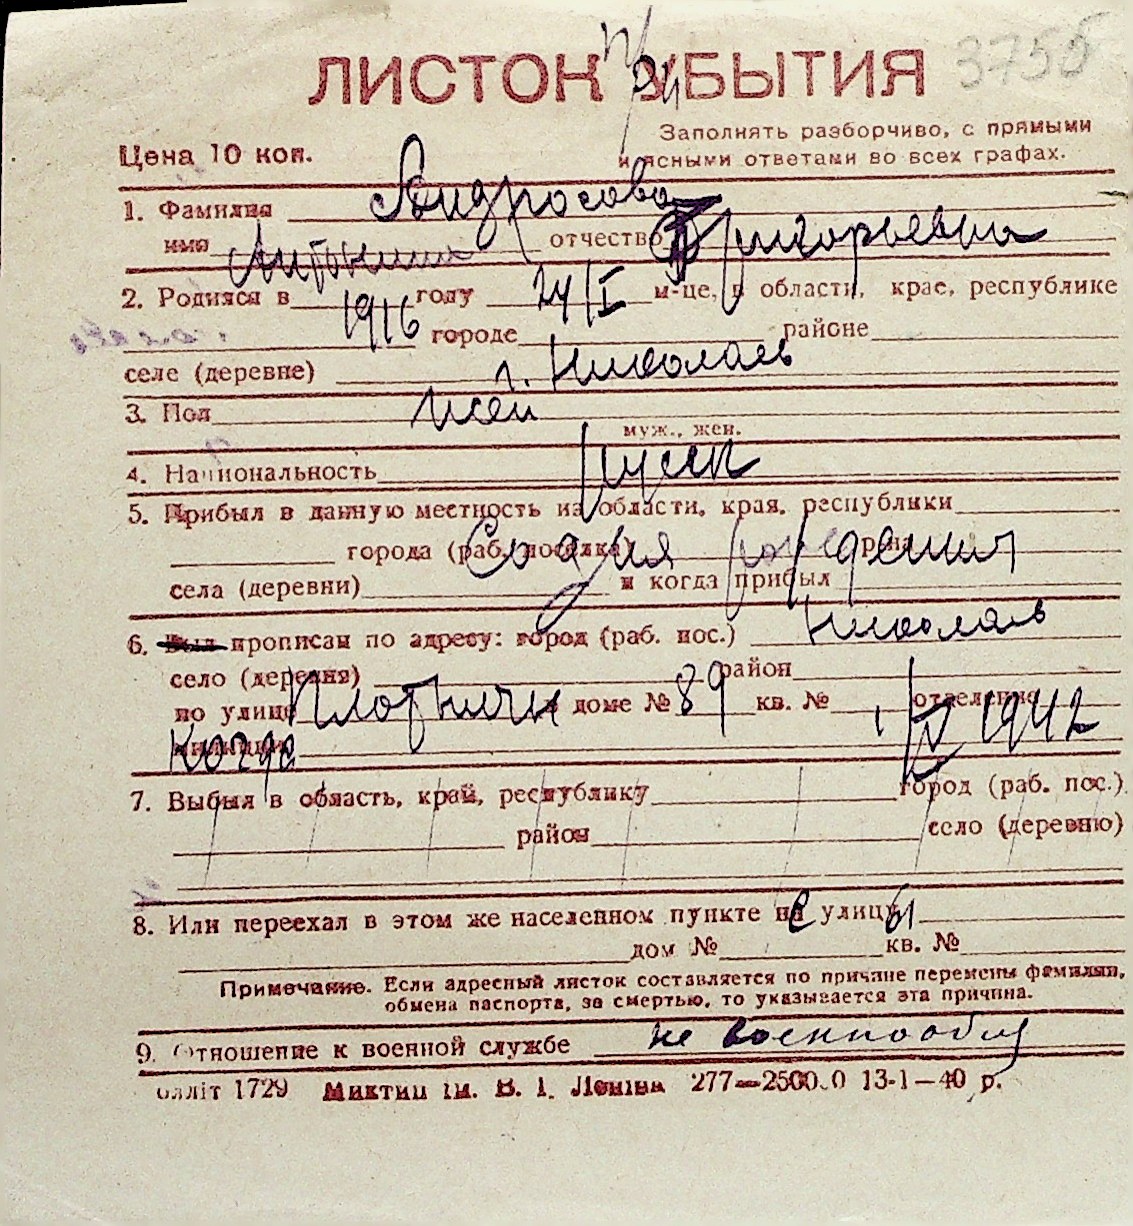 3755
ЛИСТОК УБЫТИЯ
Заполнять разборчиво, с прямыми
Цена 10 коп. и ясными ответами во всех графах.
1. Фамилия Андросова
имя Антонина отчество Григорьевна
2. Родился в 1916 году 24/I м-це, в области, крае, республике
городе районе
селе (деревне) г. Николаев
3. Пол жен
муж., жен.
4. Национальность русск
5. Прибыл в данную местность из области, края, республики
города (раб. поселка) С о дня рождения
села (деревни) и когда прибыл
6. Был прописан по адресу: город (раб. пос.) Николаев
село (деревня) район
по улице Плотничн доме № 89 кв. № отделение
Когда 1/IV 1942
7. Выбыл в область, край, республику город (раб. пос.)
район село (деревню)
8. Или переехал в этом же населенном пункте на улицы
дом № кв. №
Примечание. Если адресный листок составляется по причине перемены фамилии,
обмена паспорта, за смертью, то указывается эта причина.
9. Отношение к военной службе не военнообяз
1729 В. І. Леніна 277—2500.0 13-1—40 р.